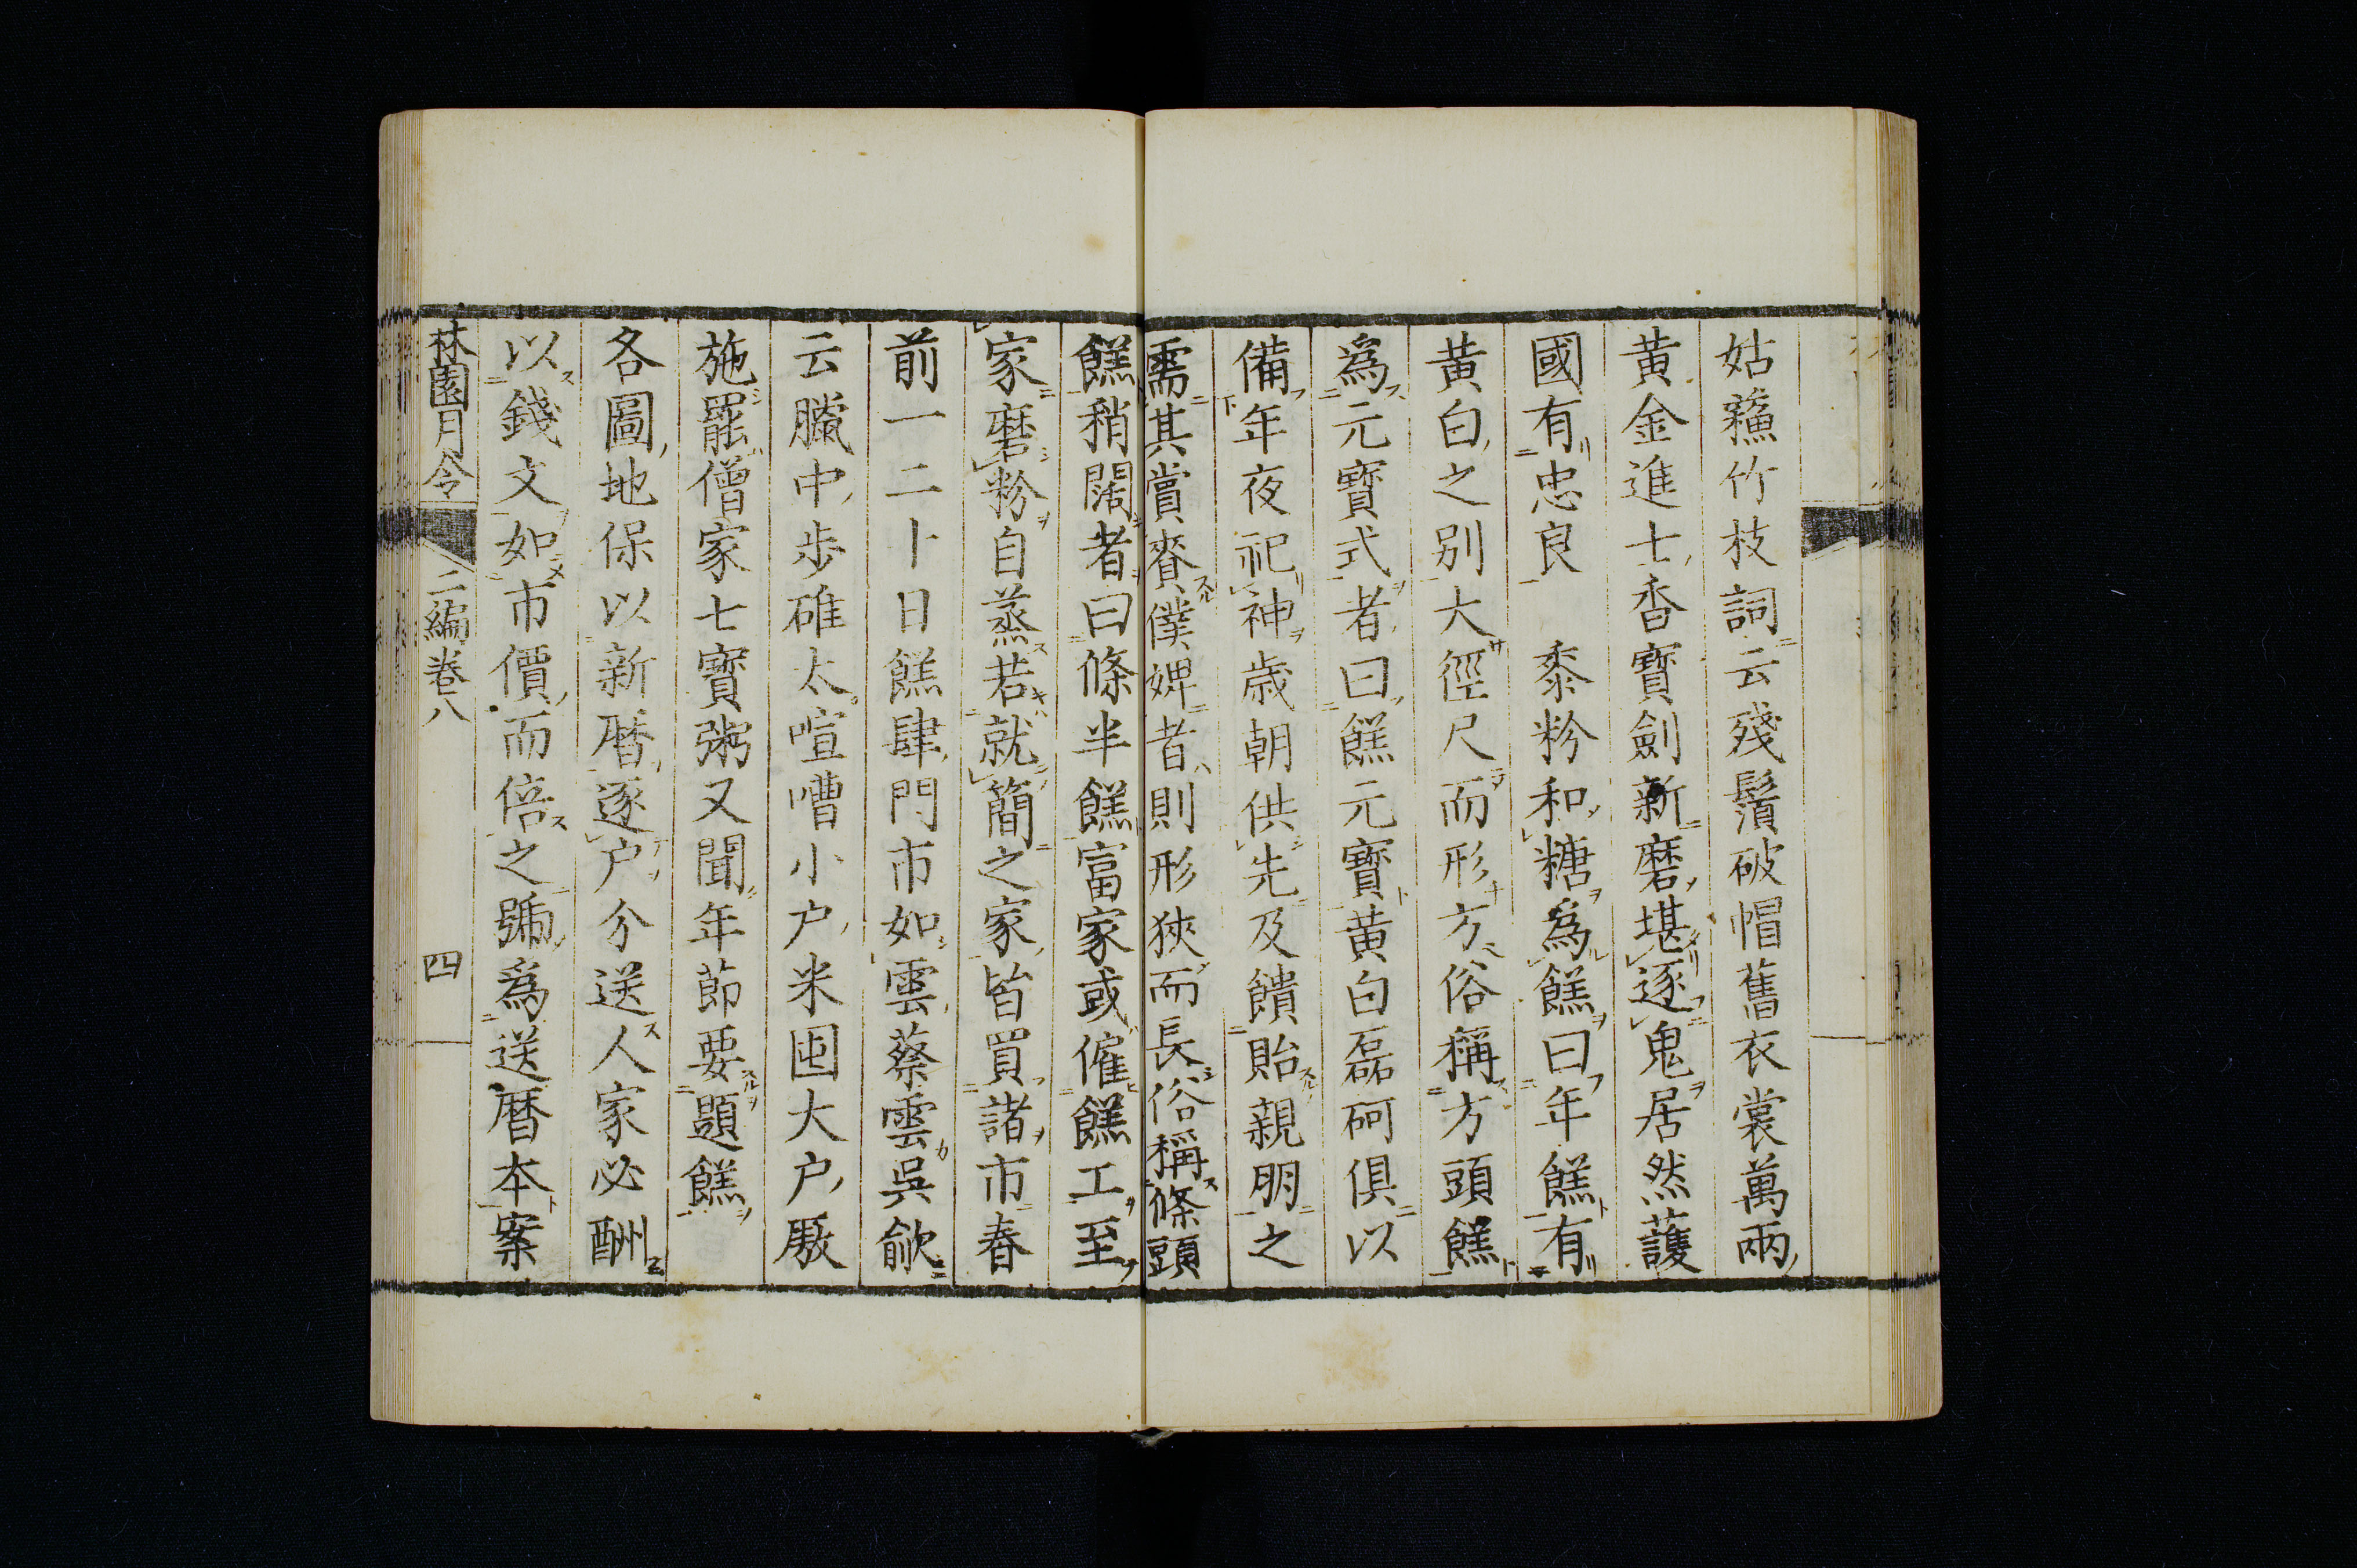 姑蘓竹枝詞云殘鬚破帽舊衣裳萬兩
黃金進士香寶劍新磨堪逐鬼居然護
國有忠良　黍粉和糖為餻曰年餻有
黃白之別大徑尺而形方俗稱方頭餻
為元寶式者曰餻元寶黄白磊砢俱以
備年夜祀神歳朝供先及饋貽親朋之
需其賞賚僕婢者則形狹而長俗稱條頭
餻稍闊者曰條半餻富家或僱餻工至
家磨粉自蒸若就簡之家皆買諸市春
前一二十日餻肆門市如雲蔡雲吳歈
云臘中步碓太喧嘈小户米囤大户厫
施罷僧家七寶粥又聞年節要題餻
各圖地保以新暦逐户分送人家必酬
以錢文如市價而倍之號為送暦本案
林園月令　二編卷八　四